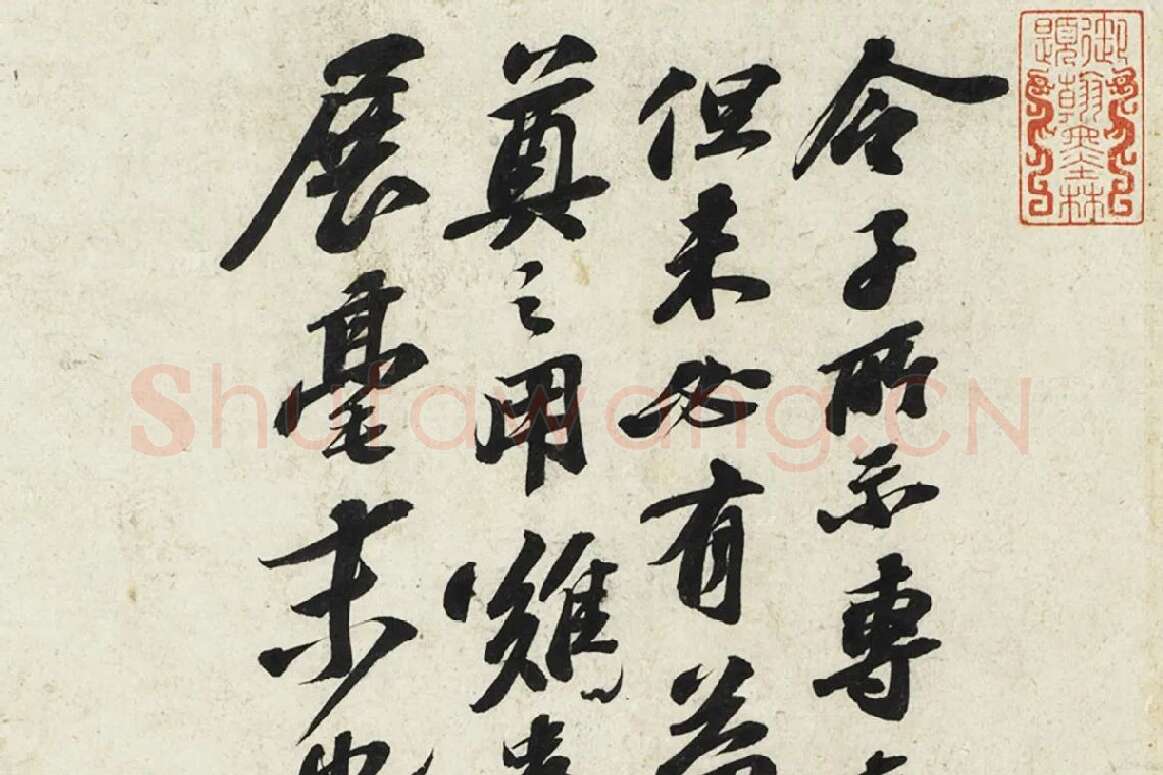 御題翰墨林
令子所示專
但未必有益
奠之用雖
展毫末
Shufawang.CN